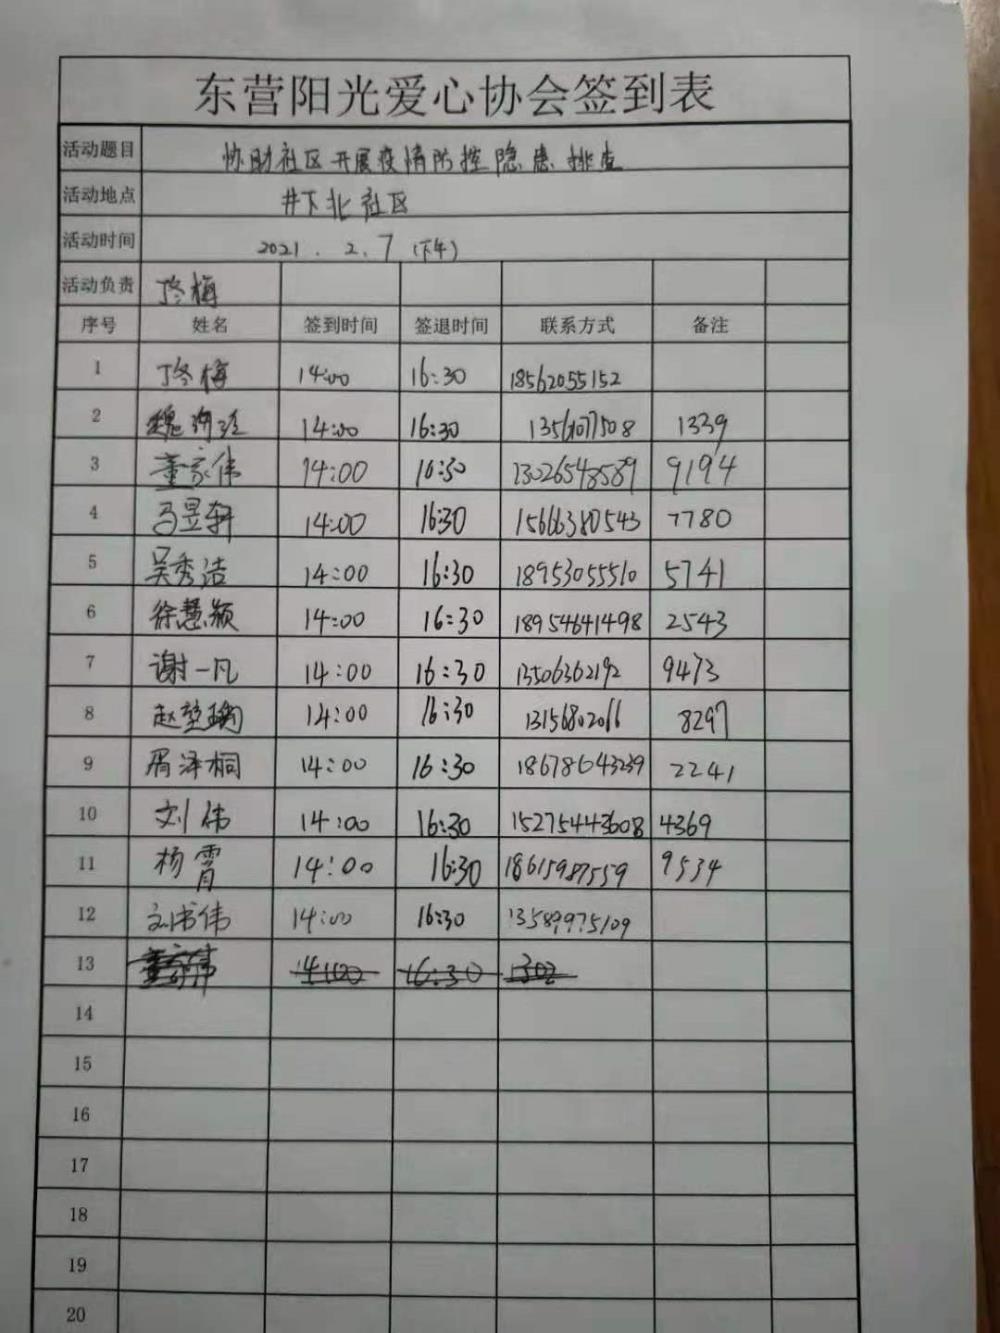 东营阳光爱心协会签到表
活动题目 协助社区开展疫情防控隐患排查
活动地点 井下北社区
活动时间 2021.2.7(下午)
活动负责 丁冬梅
序号 姓名 签到时间 签退时间 联系方式 备注
1 丁冬梅 14:00 16:30 18562055152
2 14:00 16:30 1339
3 董家伟 14:00 16:30 13026548589 9194
4 马昱轩 14:00 16:30 15666380543 7780
5 吴秀洁 14:00 16:30 18953055510 5741
6 徐慧颖 14:00 16:30 18954641498 2543
7 谢一凡 14:00 16:30 13506362192 9473
8 14:00 16:30 13156802066 8297
9 周泽桐 14:00 16:30 18678643239 2241
10 刘伟 14:00 16:30 15275443608 4369
11 杨霄 14:00 16:30 18615987559 9534
12 刘书伟 14:00 16:30 13589975109
13 董家伟 14:00 16:30 1302
14
15
16
17
18
19
20